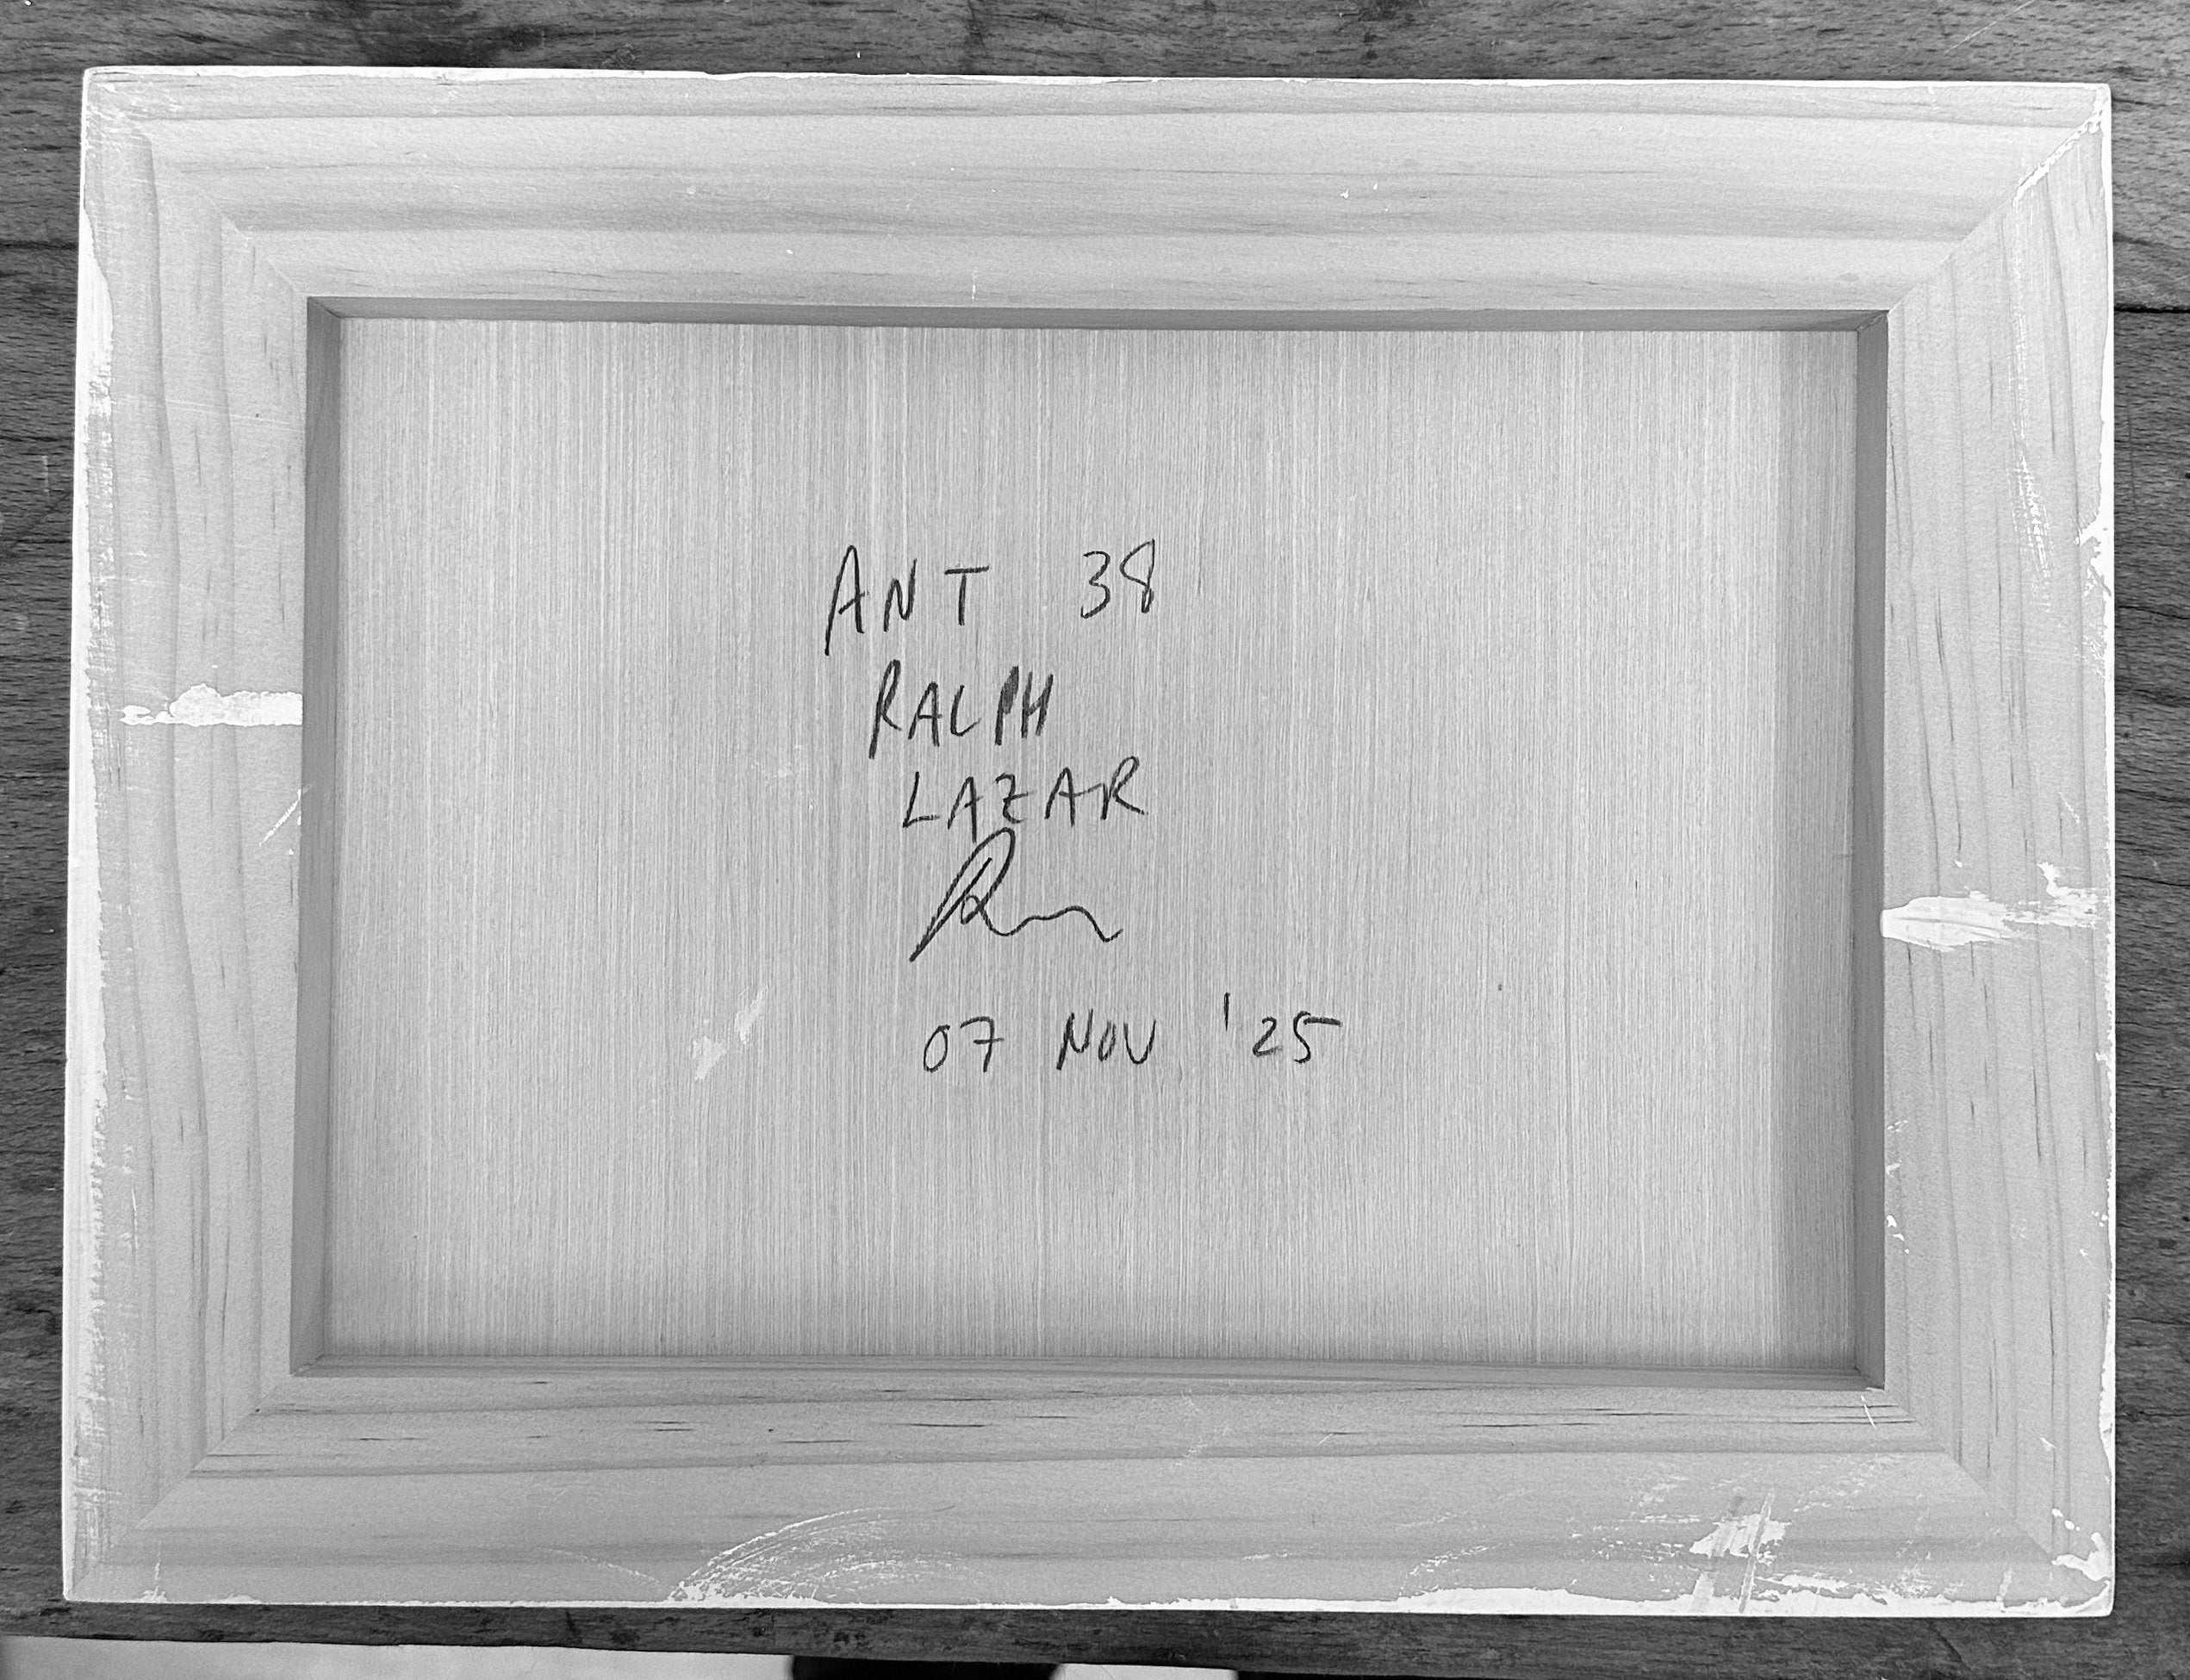 ANT 38
RALPH
LAZAR
07 NOV '25